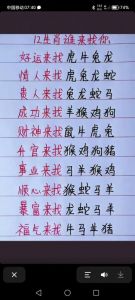 中国移动 07:40
74%
12生肖谁来找你:
好运来找虎牛兔龙
情人来找虎兔龙蛇
贵人来找兔龙蛇马
成功来找羊猴鸡狗
财神来找鼠牛虎兔
升官来找猴鸡狗猪
事业来找马羊猴鸡
顺心来找猴蛇马羊
暴富来找龙蛇马羊
福气来找牛马羊猪